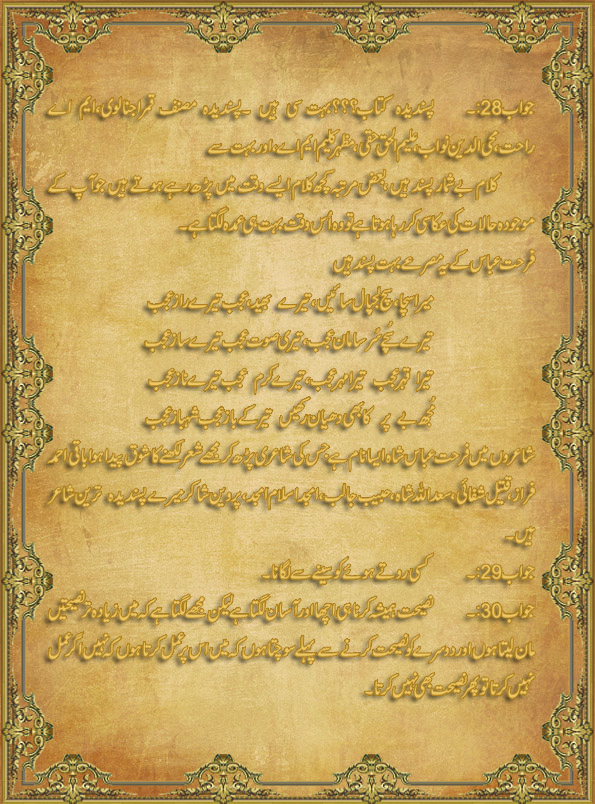 جواب28:۔ پسندیدہ کتاب؟؟؟بہت سی ہیں ۔پسندیدہ مصنف قمراجنالوی،ایم اے
راحت،محی الدین نواب،علیم الحق حقی،مظہرکلیم ایم اے،اوربہت سے
کلام بے شمار پسند ہیں ،بعض مرتبہ کچھ کلام ایسے وقت میں پڑھ رہے ہوتے ہیں جو آپ کے
موجودہ حالات کی عکاسی کررہاہوتاہے تووہ اُس وقت بہت ہی عمدہ لگتاہے۔
فرحت عباس کے یہ مصرعے بہت پسندہیں
میراسچا،سچ لجپال سائیں،تیرے بھید،عجب تیرے رازعجب
تیرے سچے سُر سامان عجب،تیری صوت عجب تیرے سازعجب
تیرا قہرعجب تیرامہرعجب،تیرے کرم عجب تیرے نازعجب
مُجھ بے پر کابھی دھیان رکھیں تیرکے بازعجب شہبازعجب
شاعروں میں فرحت عباس شاہ ایسانام ہے،جس کی شاعری پڑھ کرمجھے شعر لکھنے کاشوق پیداہوا،باقی احمد
فراز،قتیل شفائی،سعداللہ شاہ،حبیب جالب،امجداسلام امجد،پروین شاکرمیرے پسندیدہ ترین شاعر
ہیں۔
جواب29:۔ کسی روتے ہوئے کوسینے سے لگانا۔
جواب30:۔ نصیحت ہمیشہ کرناہی اچھااورآسان لگتاہے لیکن مجھے لگتاہے کہ میں زیادہ ترنصیحتیں
مان لیتاہوں اوردوسرے کونصیحت کرنے سے پہلے سوچتاہوں کہ میں اس پرعمل کرتاہوں کہ نہیں اگرعمل
نہیں کرتاتوپھرنصیحت بھی نہیں کرتا۔